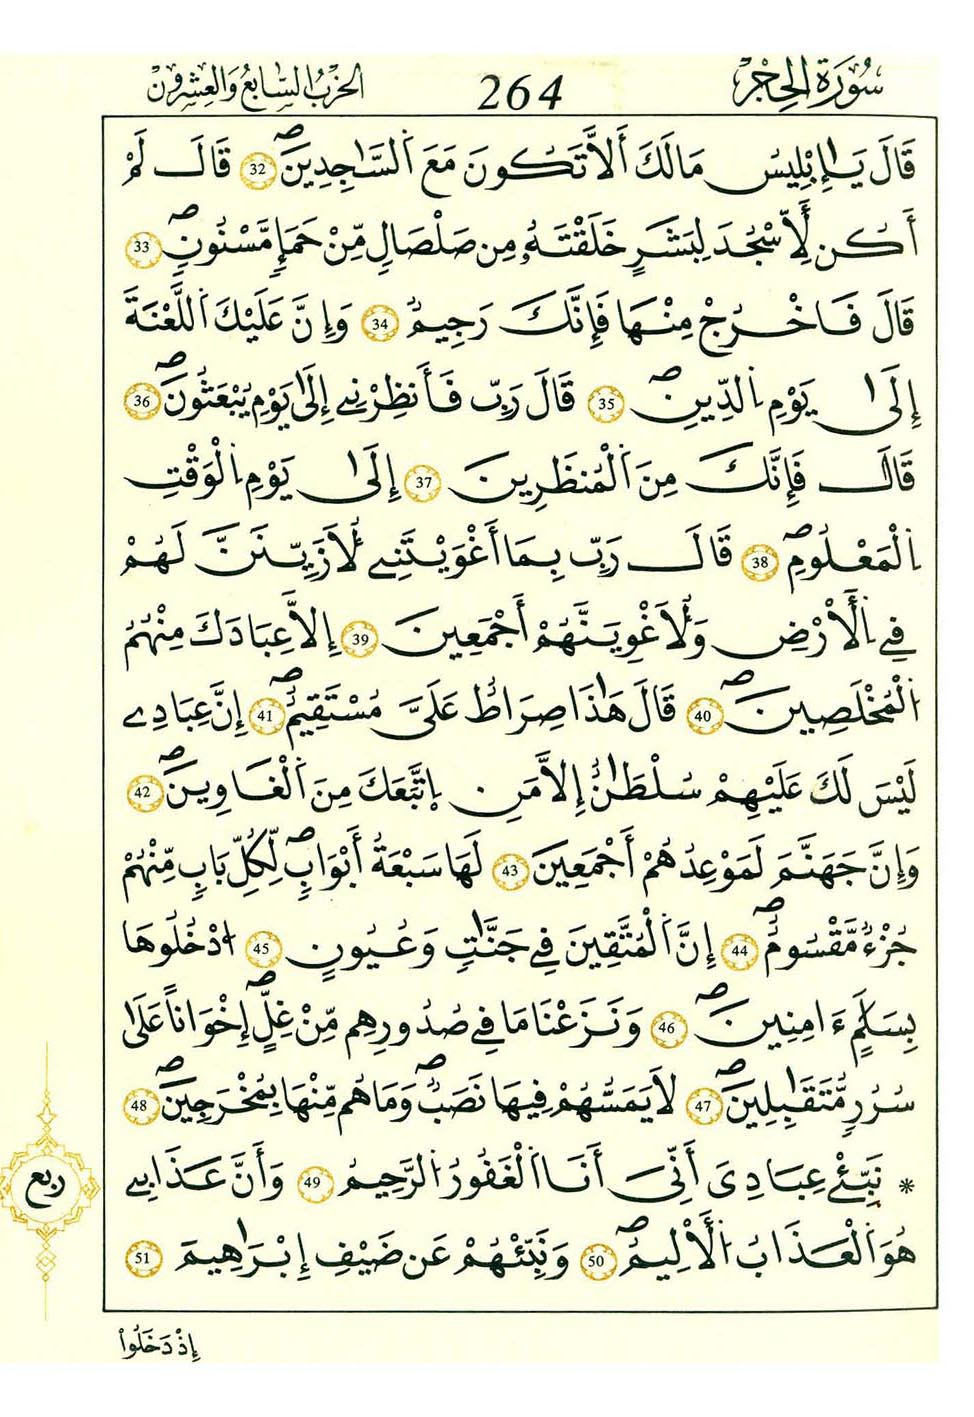 سُورَةُ الحِجْرِ 264 الحِزْبُ السَّابِعُ وَالعِشْرُونَ
قَالَ يَٰإِبْلِيسُ مَالَكَ أَلَّا تَكُونَ مَعَ اَ۬لسَّٰجِدِينَۖ 32 قَالَ لَمْ
أَكُن لِّأَسْجُدَ لِبَشَرٍ خَلَقْتَهُۥ مِن صَلْصَٰلٍ مِّنْ حَمَإٍ مَّسْنُونٍۖ 33
قَالَ فَاخْرُجْ مِنْهَا فَإِنَّكَ رَجِيمٌ 34 وَإِنَّ عَلَيْكَ اَ۬للَّعْنَةَ
إِلَىٰ يَوْمِ اِ۬لدِّينِۖ 35 قَالَ رَبِّ فَأَنظِرْنِے إِلَىٰ يَوْمِ يُبْعَثُونَۖ 36
قَالَ فَإِنَّكَ مِنَ اَ۬لْمُنظَرِينَ 37 إِلَىٰ يَوْمِ اِ۬لْوَقْتِ
اِ۬لْمَعْلُومِۖ 38 قَالَ رَبِّ بِمَا أَغْوَيْتَنِے لَأُزَيِّنَنَّ لَهُمْ
فِے اِ۬لْأَرْضِ وَلَأُغْوِيَنَّهُمْ أَجْمَعِينَ 39 إِلَّا عِبَادَكَ مِنْهُمُ
اُ۬لْمُخْلَصِينَۖ 40 قَالَ هَٰذَا صِرَٰطٌ عَلَيَّ مُسْتَقِيمٌۖ 41 إِنَّ عِبَادِے
لَيْسَ لَكَ عَلَيْهِمْ سُلْطَٰنٌ إِلَّا مَنِ اِ۪تَّبَعَكَ مِنَ اَ۬لْغَاوِينَۖ 42
وَإِنَّ جَهَنَّمَ لَمَوْعِدُهُمْ أَجْمَعِينَ 43 لَهَا سَبْعَةُ أَبْوَٰبٍۖ لِّكُلِّ بَابٍ مِّنْهُمْ
جُزْءٌ مَّقْسُومٌۖ 44 إِنَّ اَ۬لْمُتَّقِينَ فِے جَنَّٰتٍ وَعُيُونٍ 45 اُ۟دْخُلُوهَا
بِسَلَٰمٍ ءَامِنِينَۖ 46 وَنَزَعْنَا مَا فِے صُدُورِهِم مِّنْ غِلٍّۖ إِخْوَٰناً عَلَىٰ
سُرُرٍ مُّتَقَٰبِلِينَۖ 47 لَا يَمَسُّهُمْ فِيهَا نَصَبٌۖ وَمَا هُم مِّنْهَا بِمُخْرَجِينَۖ 48
* نَبِّئْ عِبَادِيَ أَنِّيَ أَنَا اَ۬لْغَفُورُ اُ۬لرَّحِيمُ 49 وَأَنَّ عَذَابِے
هُوَ اَ۬لْعَذَابُ اُ۬لْأَلِيمُۖ 50 وَنَبِّئْهُمْ عَن ضَيْفِ إِبْرَٰهِيمَ 51
ربع
إِذْ دَخَلُوا۟